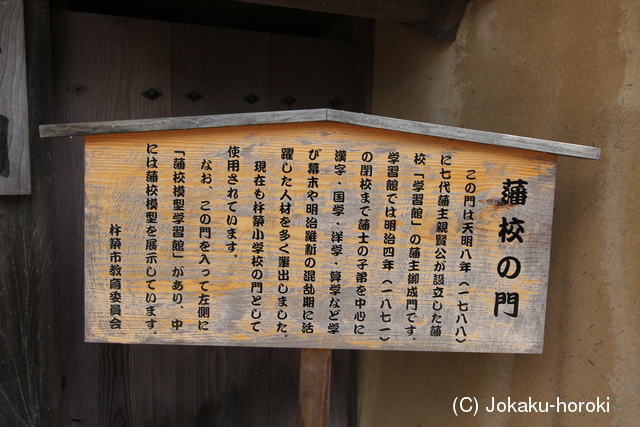 藩校の門
この門は天明八年（一七八八）
に七代藩主親賢公が設立した藩
校「学習館」の藩主御成門です。
学習館では明治四年（一八七一）
の閉校まで藩士の子弟を中心に
漢字・国学・洋学・算学など学
び幕末や明治維新の混乱期に活
躍した人材を多く輩出しました。
現在も杵築小学校の門として
使用されています。
なお、この門を入って左側に
「藩校模型学習館」があり、中
には藩校模型を展示しています。
杵築市教育委員会
(C) Jokaku-horoki